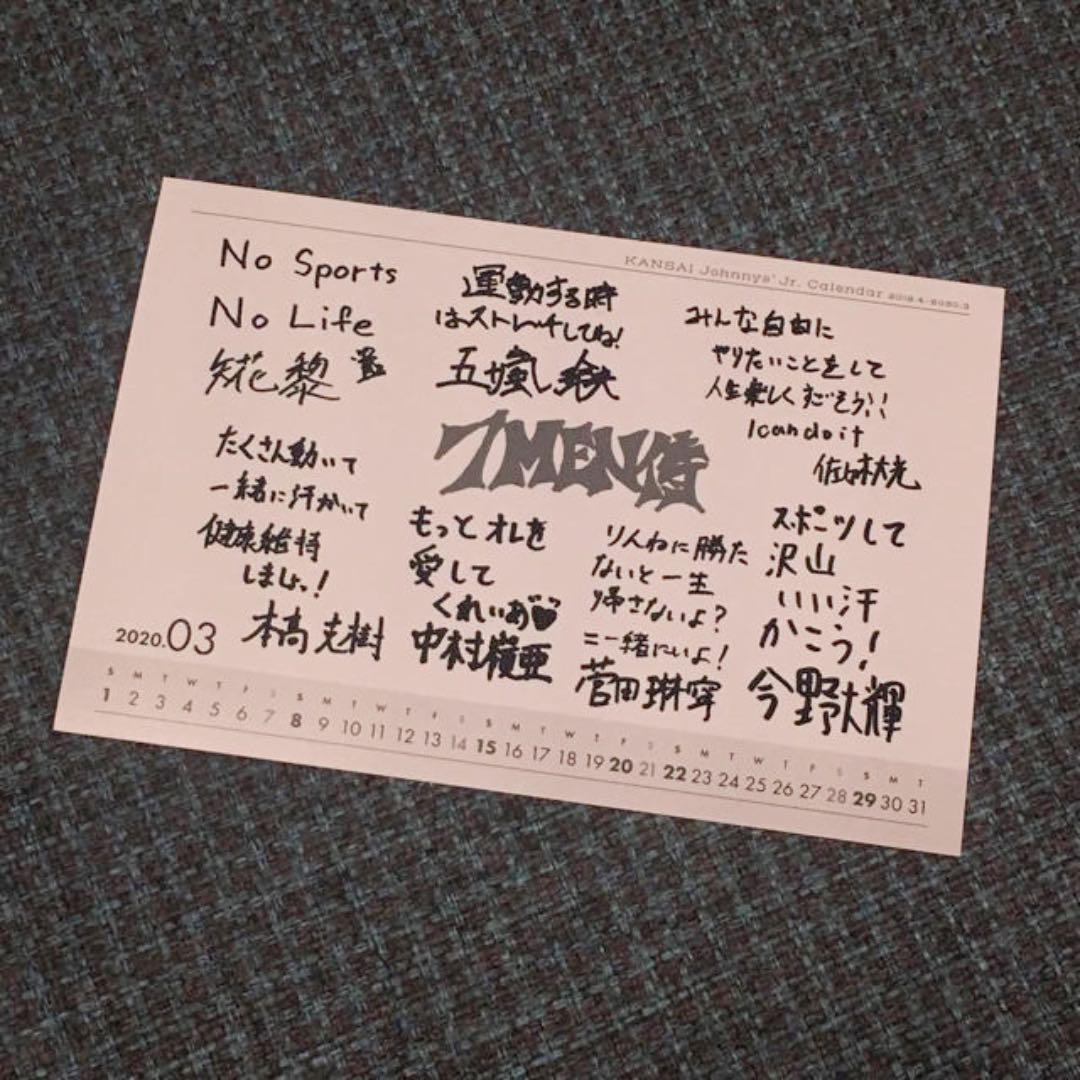 KANSAI Johnnys' Jr. Calendar 2019.4-2020.3
No Sports
No Life
矢花黎
運動する時
はストレッチしてね!
五十嵐
みんな自由に
やりたいことをして
人生楽しくすごそう!!
I can do it
佐々木大光
7MEN侍
たくさん動いて
一緒に汗かいて
健康維持
しましょっ!
本髙克樹
もっとオレを
愛して
くれいあ
中村嶺亜
りんねに勝た
ないと一生
帰さないよ?
=一緒にいよ!
菅田琳寧
スポーツして
沢山
いい汗
かこう!
今野大輝
2020.03
S M T W T F S S M T W T F S S M T W T F S S M T W T F S S M T
1 2 3 4 5 6 7 8 9 10 11 12 13 14 15 16 17 18 19 20 21 22 23 24 25 26 27 28 29 30 31